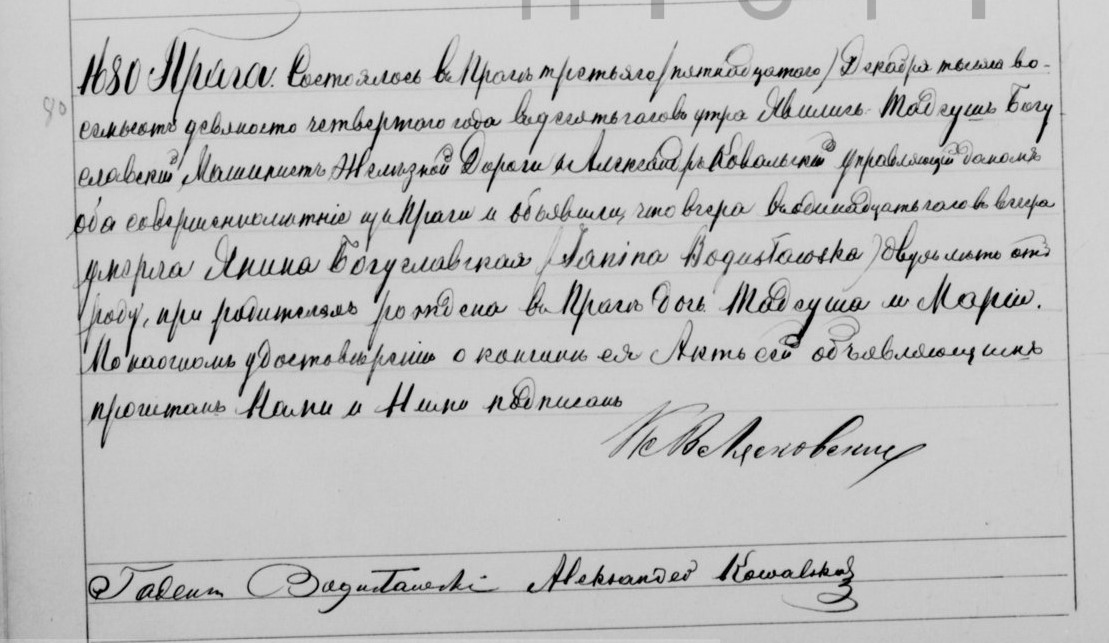 №80 Прага. Состоялось въ Прагѣ третьяго (пятнадцатаго) Декабря тысяча во-
80
семьсотъ девяносто четвертаго года въ десять часовъ утра Явились Тадеушъ Богу
славскій, Машинистъ Желѣзной Дороги и Александръ Ковальскій управляющій домомъ
оба совершеннолѣтніе изъ Праги и объявили, что вчера въ одинадцать часовъ вечера
умерла Янина Богуславская (Janina Bogusławska) двухъ лѣтъ отъ
роду, при родителяхъ рождена въ Прагѣ дочь Тадеуша и Маріи.
По наочномъ удостовѣреніи о кончинѣ ея Актъ сей объявляющимъ
прочитанъ Нами и Ними подписанъ
Кс В Лясковскій
Tadeusz Bogusławski Aleksander Kowalski